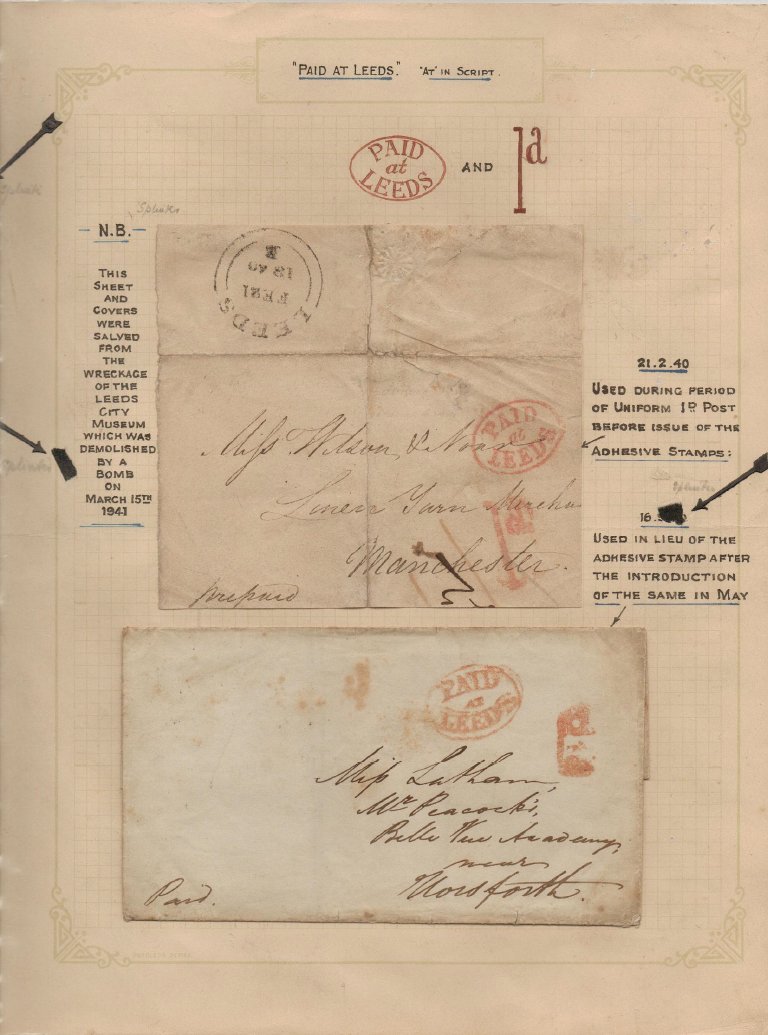 "PAID AT LEEDS." 'AT' IN SCRIPT.
PAID
at
LEEDS
AND
1d
Splinter
N.B.
THIS
SHEET
AND
COVERS
WERE
SALVED
FROM
THE
WRECKAGE
OF THE
LEEDS
CITY
MUSEUM
WHICH WAS
DEMOLISHED
BY A
BOMB
ON
MARCH 15TH
1941
LEEDS
FE21
1840
E
21.2.40
USED DURING PERIOD
OF UNIFORM 1D POST
BEFORE ISSUE OF THE
ADHESIVE STAMPS:
PAID
at
LEEDS
Miss Wilson &
Linen Yarn
Manchester.
Prepaid
1d
Splinter
16.
USED IN LIEU OF THE
ADHESIVE STAMP AFTER
THE INTRODUCTION
OF THE SAME IN MAY
PAID
AT
LEEDS
Miss Latham,
Mr Peacock's,
Belle Vue Academy,
near
Horsforth.
Paid.